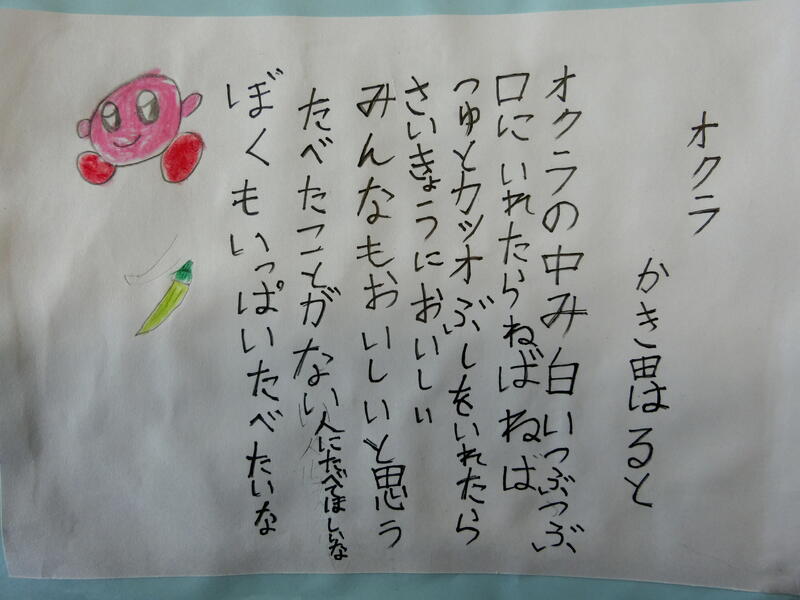 オクラ
かき田はると
オクラの中み白いつぶつぶ
口にいれたらねばねば
つゆとカツオぶしをいれたら
さいきょうにおいしい
みんなもおいしいと思う
たべたことがない人にたべてほしいな
ぼくもいっぱいたべたいな